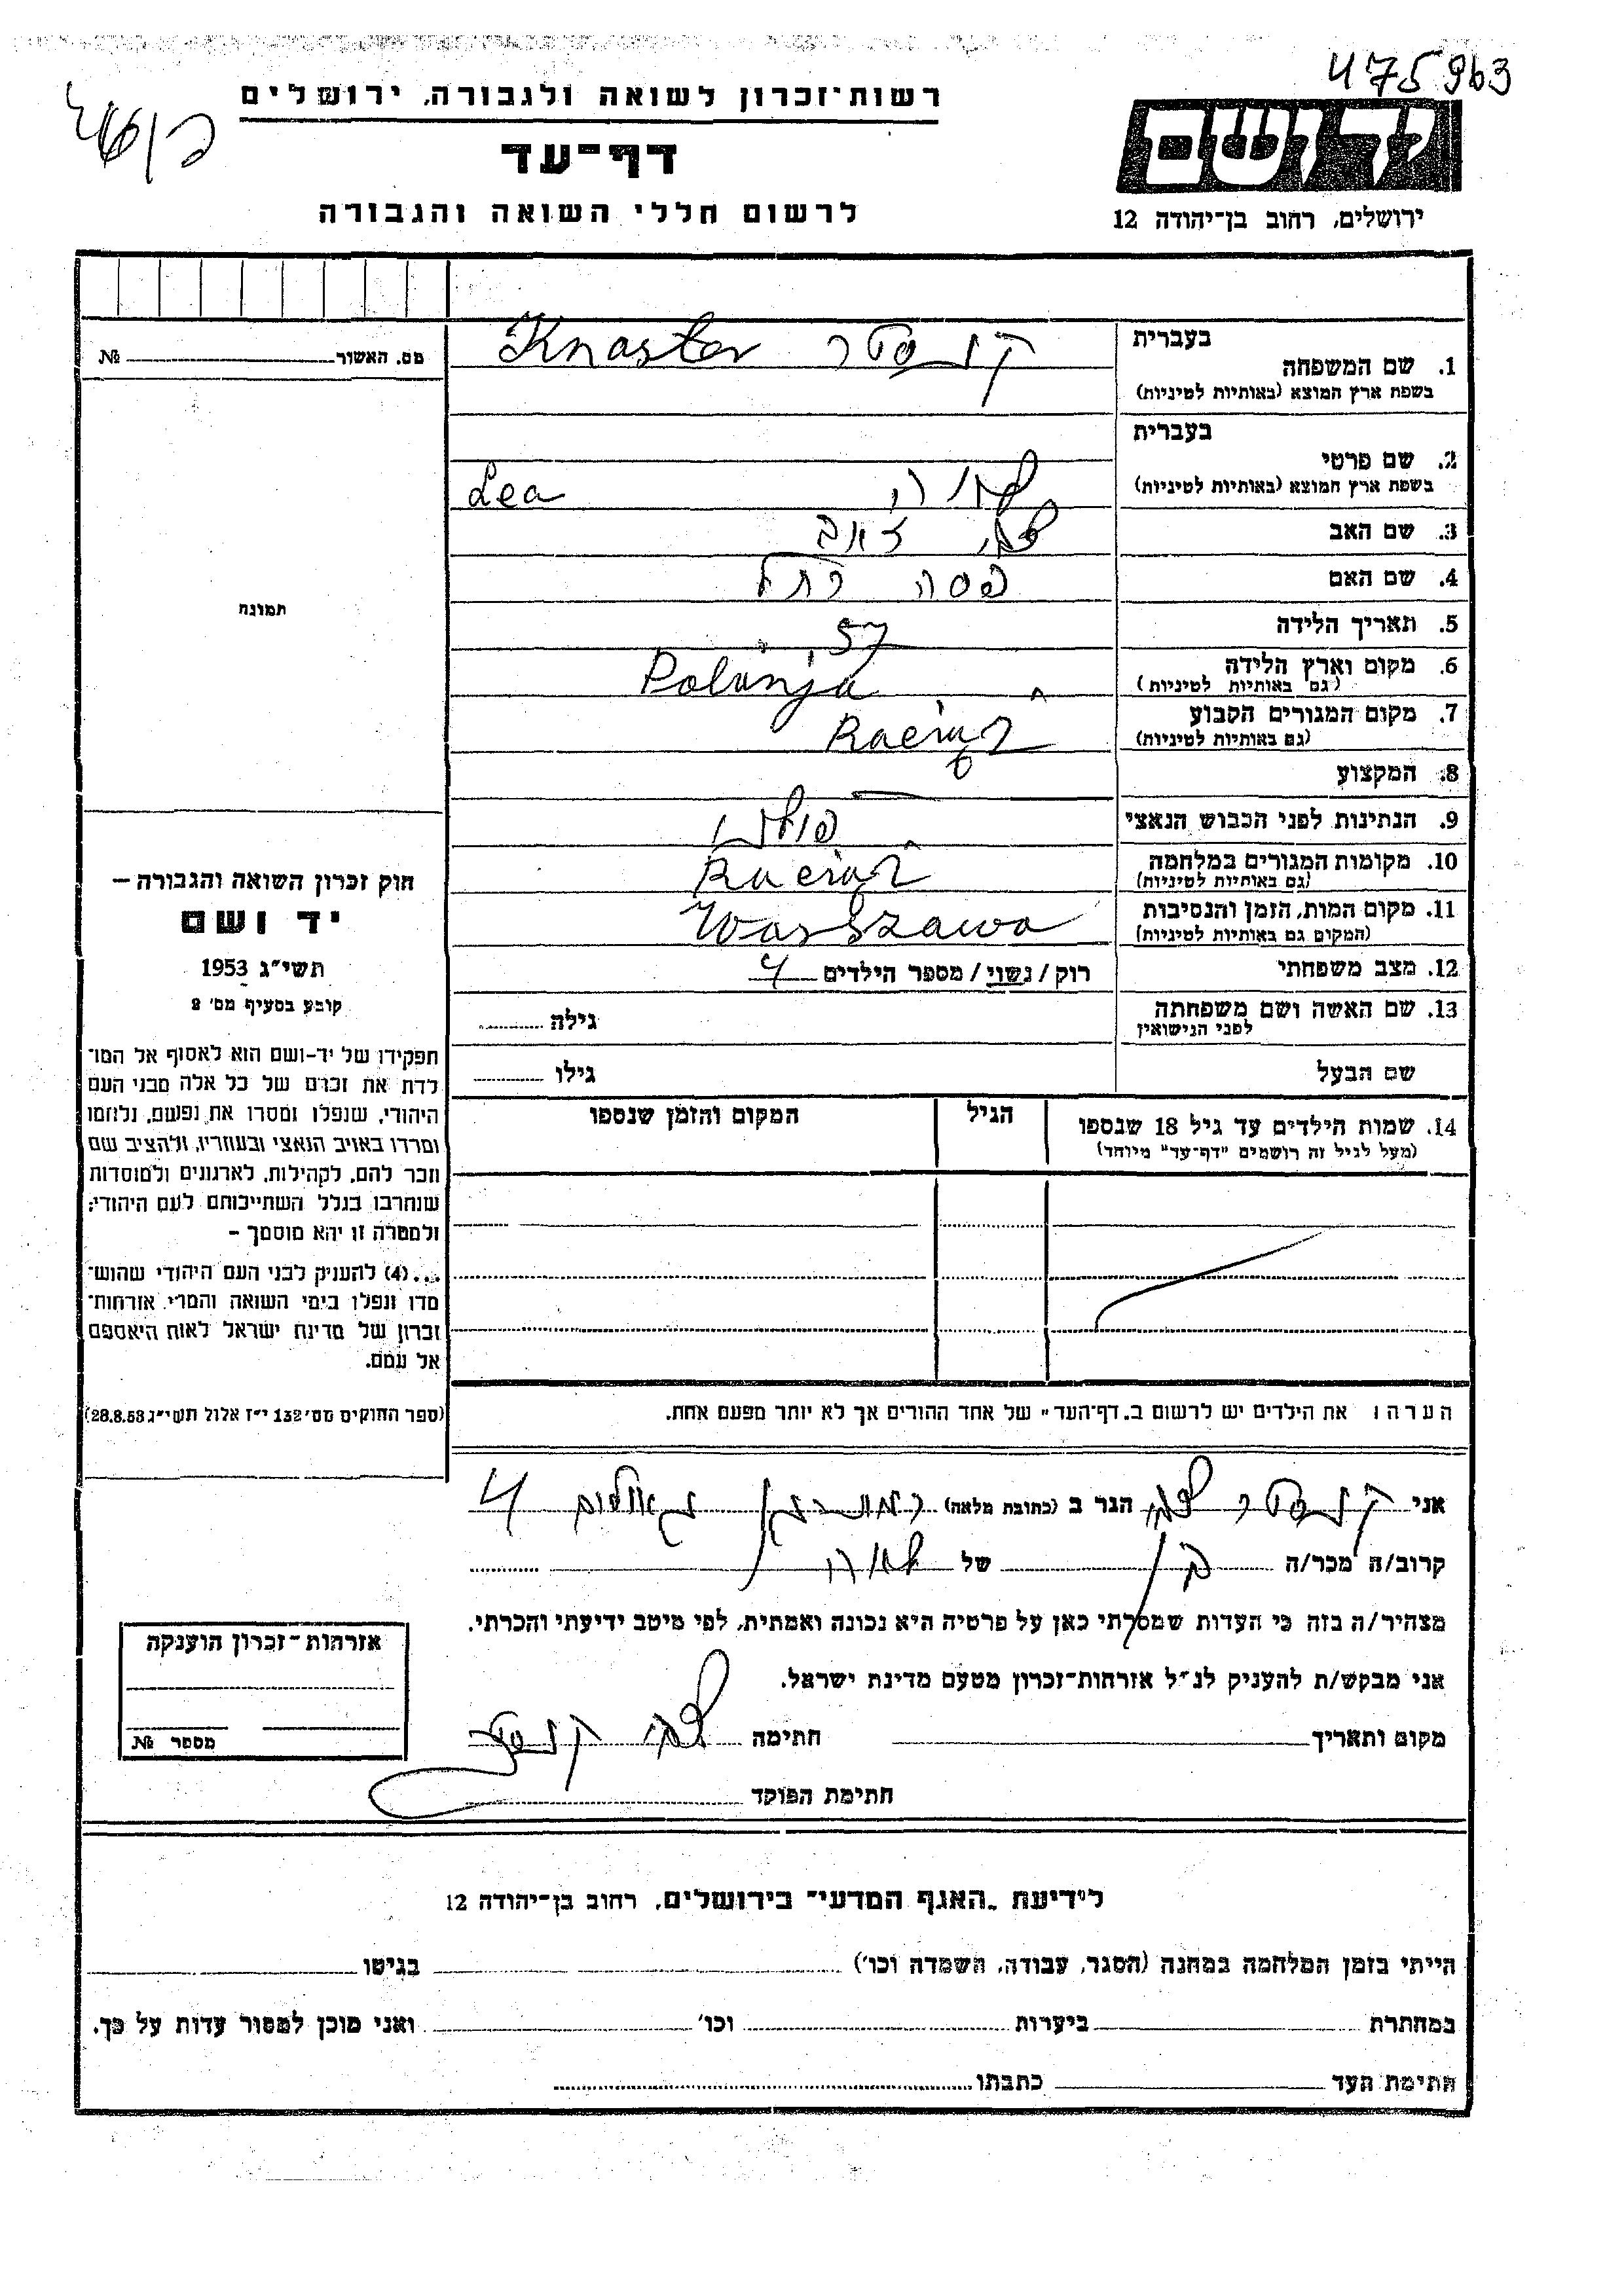 475963
רשות־זכרון לשואה ולגבורה, ירושלים
דף־עד
לרשום חללי השואה והגבורה
יד ושם
ירושלים, רחוב בן־יהודה 12
מס. האשור № 
בעברית
1. שם המשפחה קנסטר Knaster
בשפת ארץ המוצא (באותיות לטיניות)
בעברית
2. שם פרטי
בשפת ארץ המוצא (באותיות לטיניות) לאה Lea
3. שם האב צבי זאב
4. שם האם פסה רחל
5. תאריך הלידה 57
6. מקום וארץ הלידה Polanja
(גם באותיות לטיניות)
7. מקום המגורים הקבוע Raciąz
(גם באותיות לטיניות)
8. המקצוע
9. הנתינות לפני הכבוש הנאצי
10. מקומות המגורים במלחמה Raciąz
(גם באותיות לטיניות)
11. מקום המות, הזמן והנסיבות Warszawa
(המקום גם באותיות לטיניות)
12. מצב משפחתי רוק / נשוי / מספר הילדים 4
13. שם האשה ושם משפחתה גילה
לפני הנישואין
שם הבעל גילו
14. שמות הילדים עד גיל 18 שנספו הגיל המקום והזמן שנספו
(מעל לגיל זה רושמים "דף־עד" מיוחד)
הערה: את הילדים יש לרשום ב„דף־העד" של אחד ההורים אך לא יותר מפעם אחת.
תמונה
חוק זכרון השואה והגבורה –
יד ושם
תשי"ג 1953
קובע בסעיף מס' 2
תפקידו של יד–ושם הוא לאסוף אל המו־
לדת את זכרם של כל אלה מבני העם
היהודי, שנפלו ומסרו את נפשם, נלחמו
ומרדו באויב הנאצי ובעוזריו, ולהציב שם
וזכר להם, לקהילות, לארגונים ולמוסדות
שנחרבו בגלל השתייכותם לעם היהודי;
ולמטרה זו יהא מוסמך –
...(4) להעניק לבני העם היהודי שהוש־
מדו ונפלו בימי השואה והמרי, אזרחות־
זכרון של מדינת ישראל לאות היאספם
אל עמם.
(ספר החוקים מס' 132 י"ז אלול תשי"ג 28.8.53)
אני קנסטר צבי הגר ב (כתובת מלאה) 4
קרוב/ה מכר/ה בן של לאה
מצהיר/ה בזה כי העדות שמסרתי כאן על פרטיה היא נכונה ואמתית, לפי מיטב ידיעתי והכרתי.
אני מבקש/ת להעניק לנ"ל אזרחות־זכרון מטעם מדינת ישראל.
מקום ותאריך חתימה צבי קנסטר
חתימת הפוקד
אזרחות־זכרון הוענקה
מספר №
לידיעת „האגף המדעי" בירושלים, רחוב בן־יהודה 12
הייתי בזמן המלחמה במחנה (הסגר, עבודה, השמדה וכו') בגיטו
במחתרת ביערות וכו' ואני מוכן למסור עדות על כך.
חתימת העד כתבתו